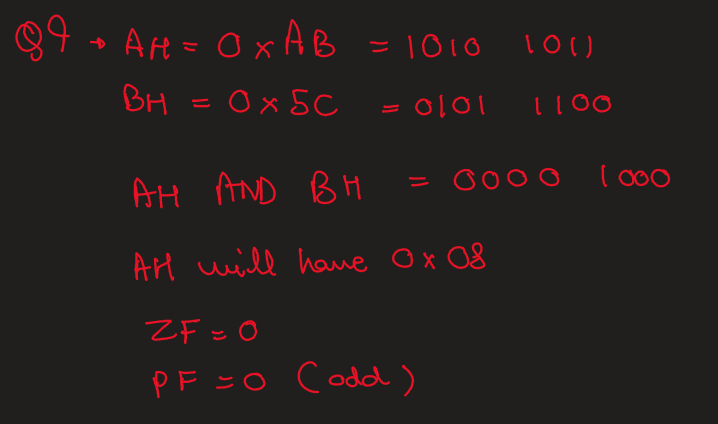 Q9 → AH = 0xAB = 1010 1011
BH = 0x5C = 0101 1100
AH AND BH = 0000 1000
AH will have 0x08
ZF = 0
PF = 0 (odd)